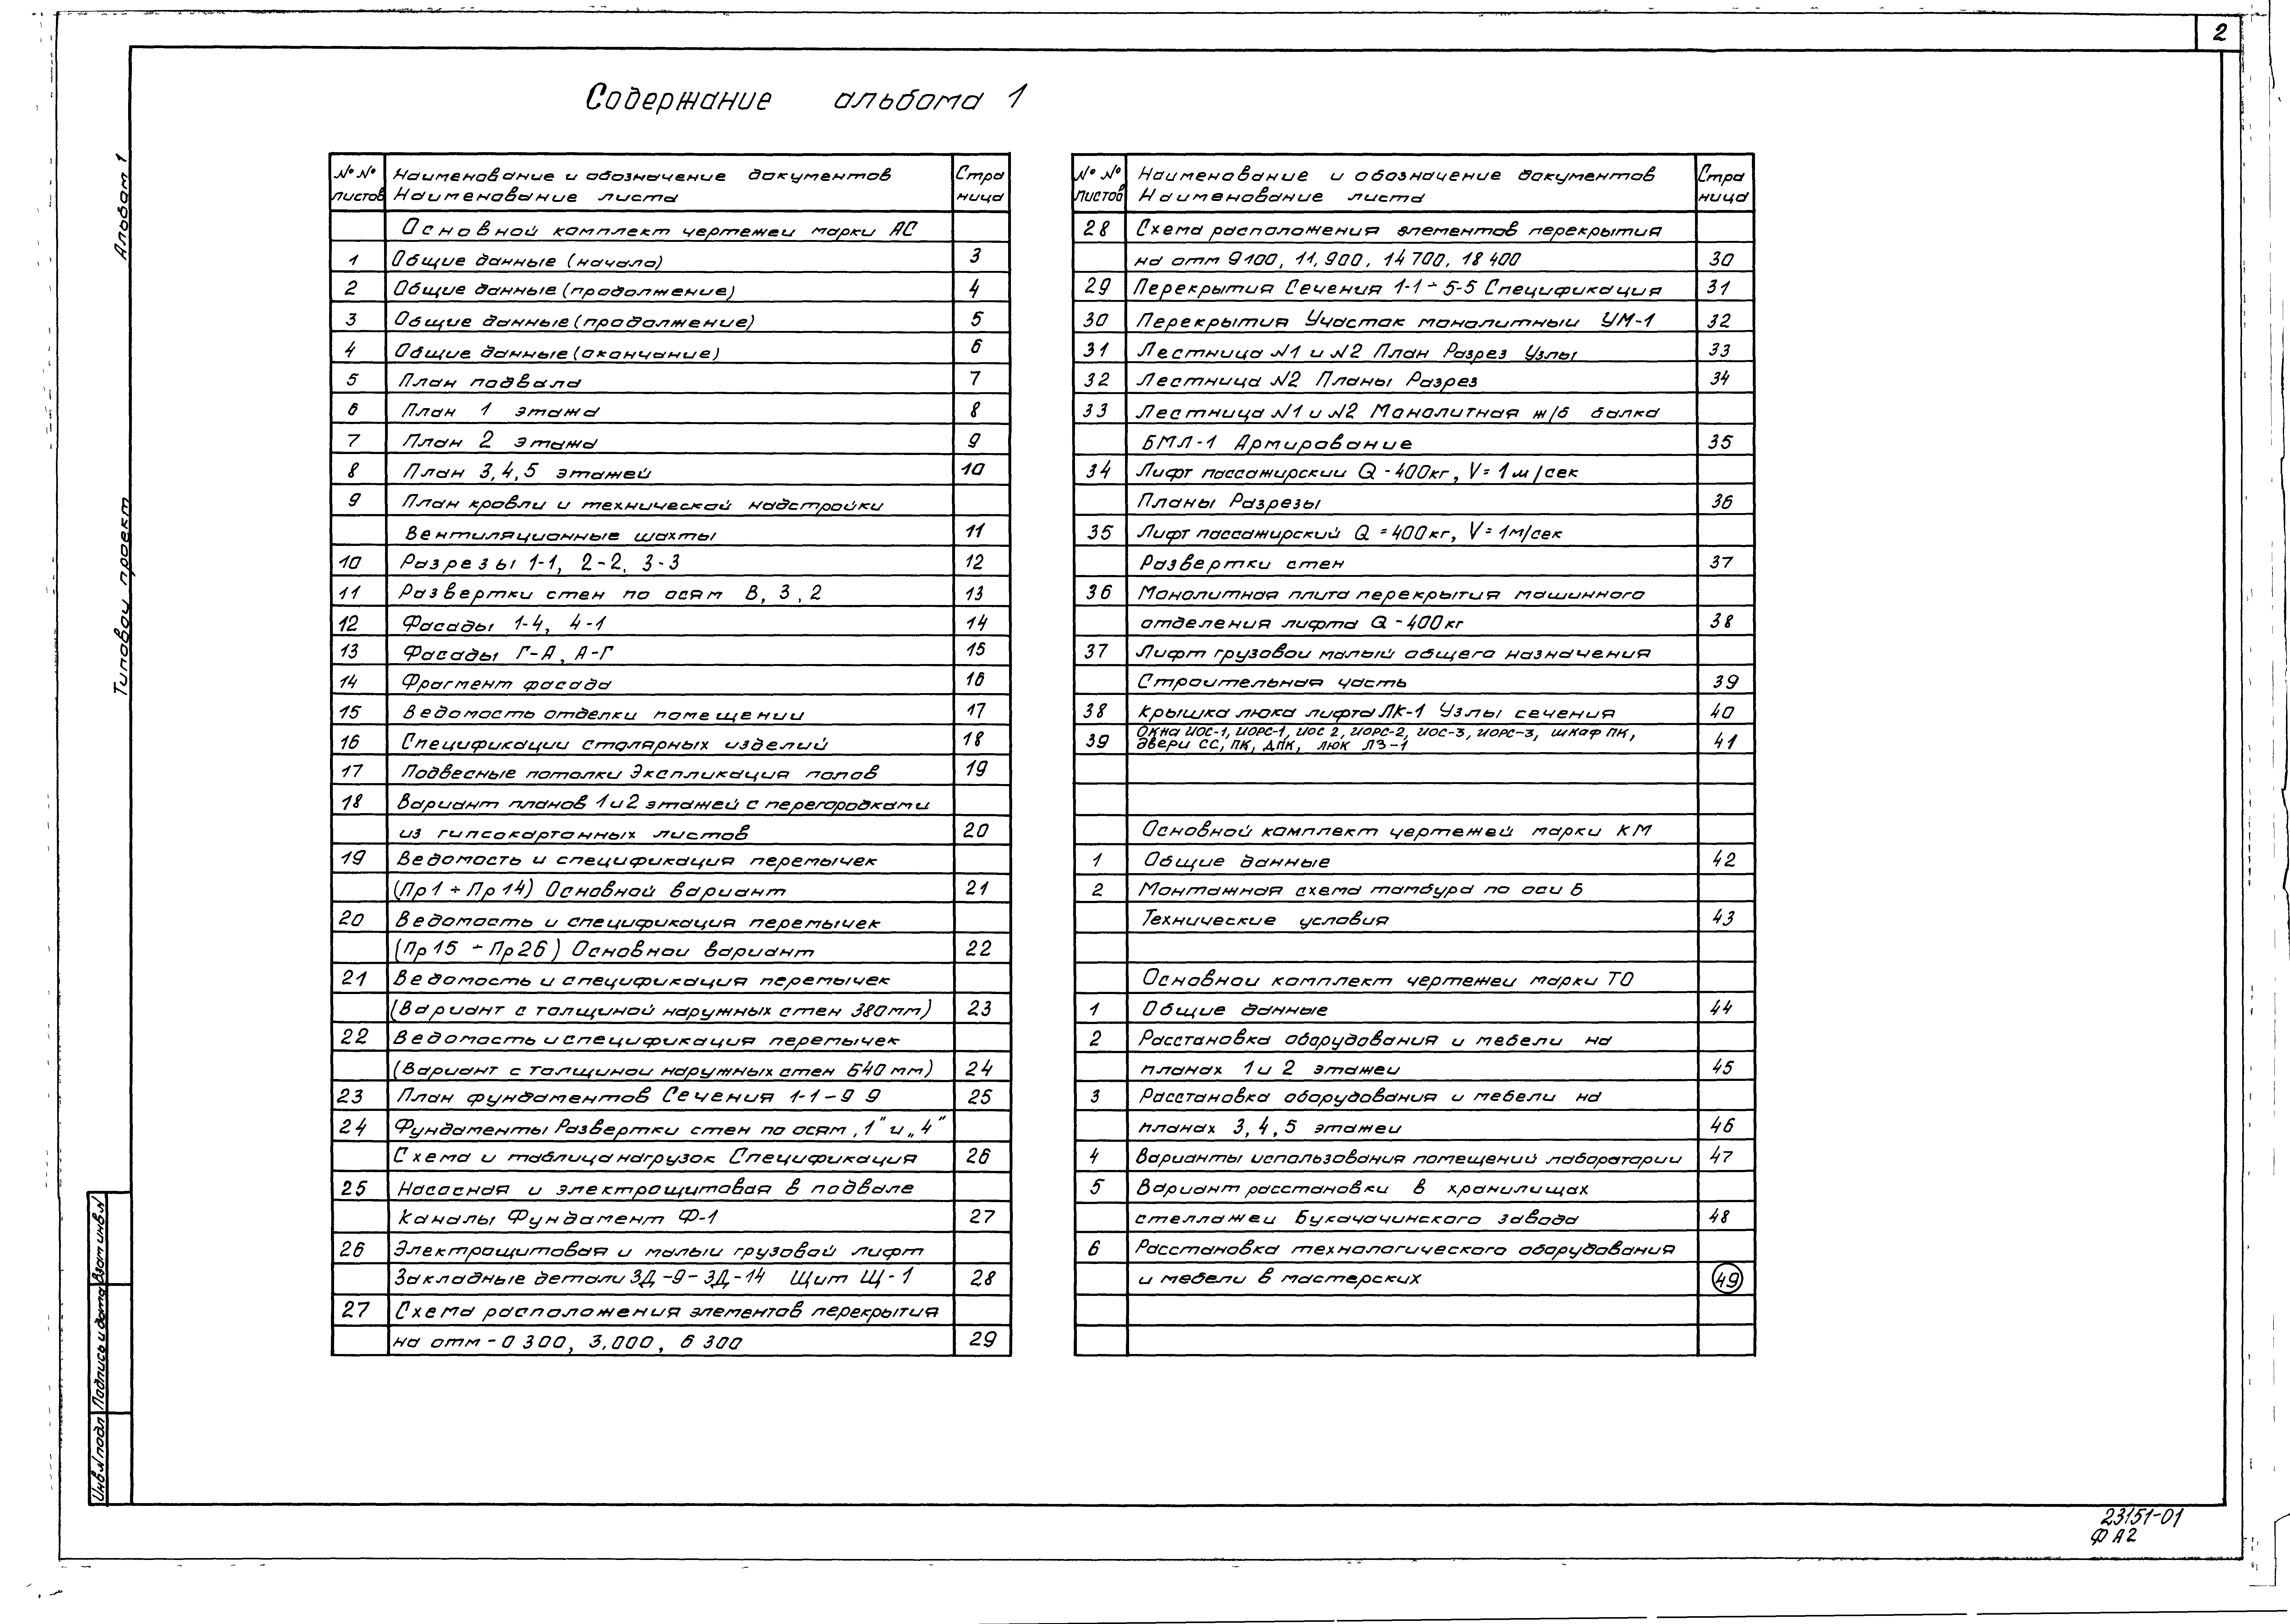 2
Содержание альбома 1
Альбом 1
Типовой проект
№ № листов Наименование и обозначение документов Наименование листа Страница
Основной комплект чертежеи марки АС
1 Общие данные (начало) 3
2 Общие данные (продолжение) 4
3 Общие данные (продолжение) 5
4 Общие данные (окончание) 6
5 План подвала 7
6 План 1 этажа 8
7 План 2 этажа 9
8 План 3, 4, 5 этажей 10
9 План кровли и технической надстройки
Вентиляционные шахты 11
10 Разрезы 1-1, 2-2, 3-3 12
11 Развертки стен по осям В, 3, 2 13
12 Фасады 1-4, 4-1 14
13 Фасады Г-А, А-Г 15
14 Фрагмент фасада 16
15 Ведомость отделки помещении 17
16 Спецификации столярных изделий 18
17 Подвесные потолки Экспликация полов 19
18 Вариант планов 1 и 2 этажей с перегородками
из гипсокартонных листов 20
19 Ведомость и спецификация перемычек
(Пр 1 ÷ Пр 14) Основной вариант 21
20 Ведомость и спецификация перемычек
(Пр 15 ÷ Пр 26) Основнои вариант 22
21 Ведомость и спецификация перемычек
(Вариант с толщиной наружных стен 380 мм) 23
22 Ведомость и спецификация перемычек
(Вариант с толщинои наружных стен 640 мм) 24
23 План фундаментов Сечения 1-1 – 9 9 25
24 Фундаменты Развертки стен по осям „1" и „4"
Схема и таблица нагрузок Спецификация 26
25 Насосная и электрощитовая в подвале
Каналы Фундамент Ф-1 27
26 Электрощитовая и малыи грузовой лифт
Закладные детали ЗД-9 - ЗД-14 Щит Щ-1 28
27 Схема расположения элементов перекрытия
на отм -0 300, 3.000, 6 300 29
№ № листов Наименование и обозначение документов Наименование листа Страница
28 Схема расположения элементов перекрытия
на отм 9100, 11,900. 14 700. 18 400 30
29 Перекрытия Сечения 1-1 ÷ 5-5 Спецификация 31
30 Перекрытия Участок монолитныи УМ-1 32
31 Лестница N1 и N2 План Разрез Узлы 33
32 Лестница N2 Планы Разрез 34
33 Лестница N1 и N2 Монолитная ж/б балка
БМЛ-1 Армирование 35
34 Лифт пассажирскии Q - 400 кг, V = 1 м/сек
Планы Разрезы 36
35 Лифт пассажирский Q = 400 кг, V = 1 м/сек
Развертки стен 37
36 Монолитная плита перекрытия машинного
отделения лифта Q - 400 кг 38
37 Лифт грузовои малый общего назначения
Строительная часть 39
38 Крышка люка лифта ЛК-1 Узлы сечения 40
39 Окна ИОС-1, ИОРС-1, ИОС 2, ИОРС-2, ИОС-3, ИОРС-3, шкаф ПК,
двери СС, ПК, ДПК, люк ЛЗ-1 41
Основной комплект чертежей марки КМ
1 Общие данные 42
2 Монтажная схема тамбура по оси Б
Технические условия 43
Основнои комплект чертежеи марки ТО
1 Общие данные 44
2 Расстановка оборудования и мебели на
планах 1 и 2 этажеи 45
3 Расстановка оборудования и мебели на
планах 3, 4, 5 этажеи 46
4 Варианты использования помещений лаборатории 47
5 Вариант расстановки в хранилищах
стеллажеи Букачачинского завода 48
6 Расстановка технологического оборудования
и мебели в мастерских 49
Инв.N подл Подпись и дата Взам инв.N
23151-01
Ф А2